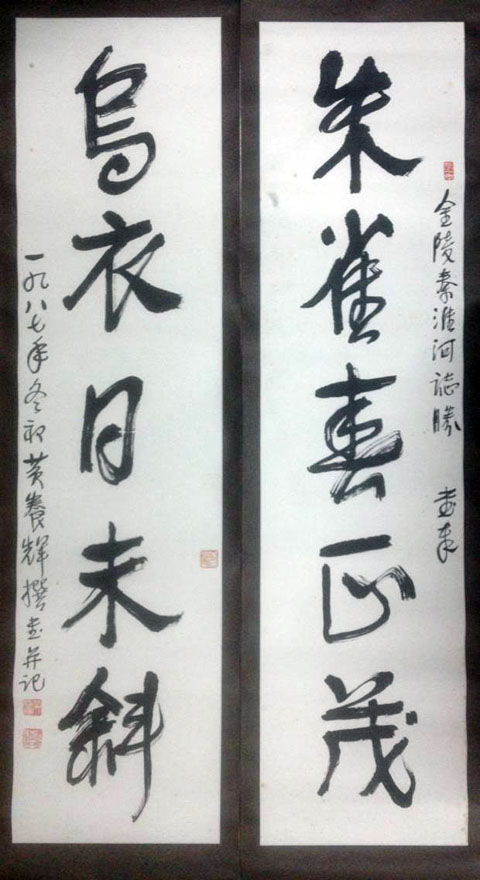 金陵秦淮河誌勝 書奉
朱雀春正茂
烏衣日未斜
一九八七年冬初黄養輝撰書并記